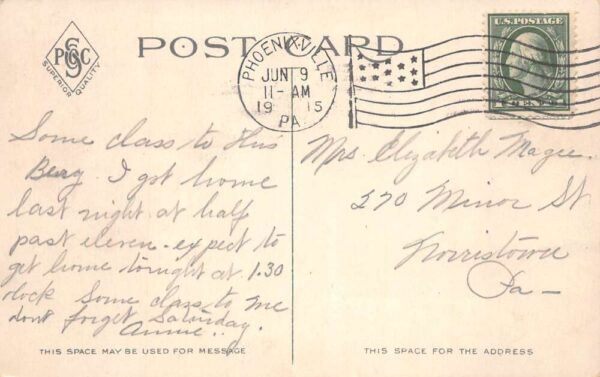 P S C
SUPERIOR QUALITY
POST CARD
PHOENIXVILLE
JUN 9
11-AM
1915
PA.
U.S. POSTAGE
1 CENT 1
Some class to this
Berg. I got home
last night at half
past eleven. expect to
get home tonight at 1.30
clock Some class to me
dont forget Saturday.
Annie..
Mrs. Elizabeth Magee.
270 Minor St
Norristown
Pa—
THIS SPACE MAY BE USED FOR MESSAGE
THIS SPACE FOR THE ADDRESS